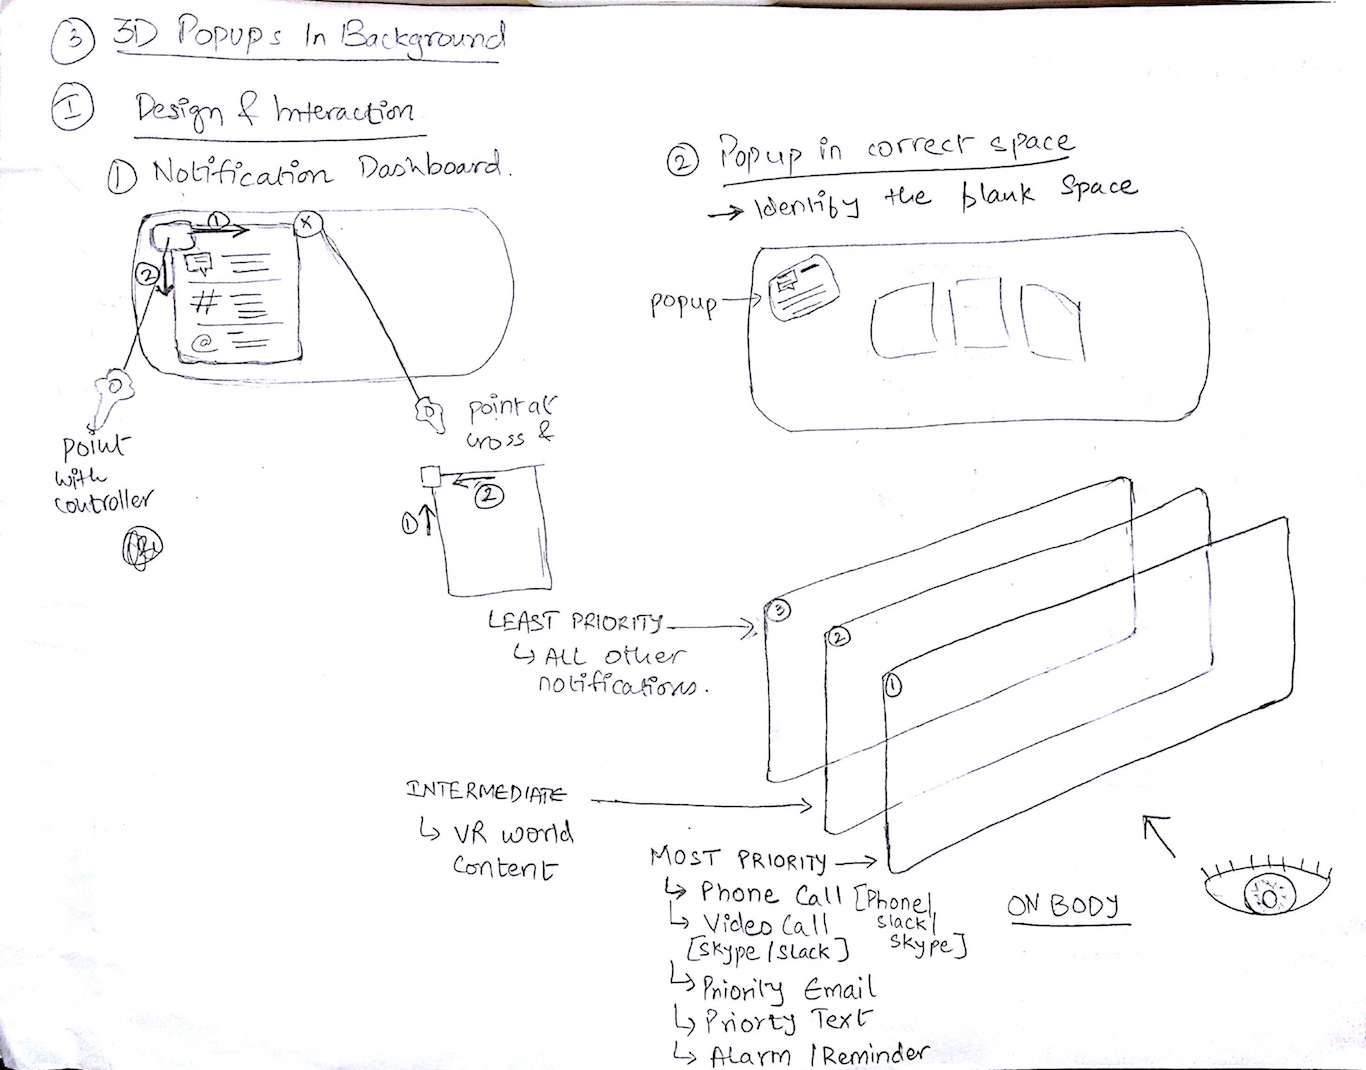 3 3D Popups In Background
I Design & Interaction
1 Notification Dashboard.
1
X
2
#
@
point
with
controller
point at
cross &
2
1
2 Popup in correct space
→ Identify the blank space
popup
3
2
1
LEAST PRIORITY
↳ ALL other
notifications.
INTERMEDIATE
↳ VR world
content
MOST PRIORITY
↳ Phone Call [Phone/
slack/
skype]
↳ Video Call
[skype/slack]
↳ Priority Email
↳ Priorty Text
↳ Alarm / Reminder
ON BODY